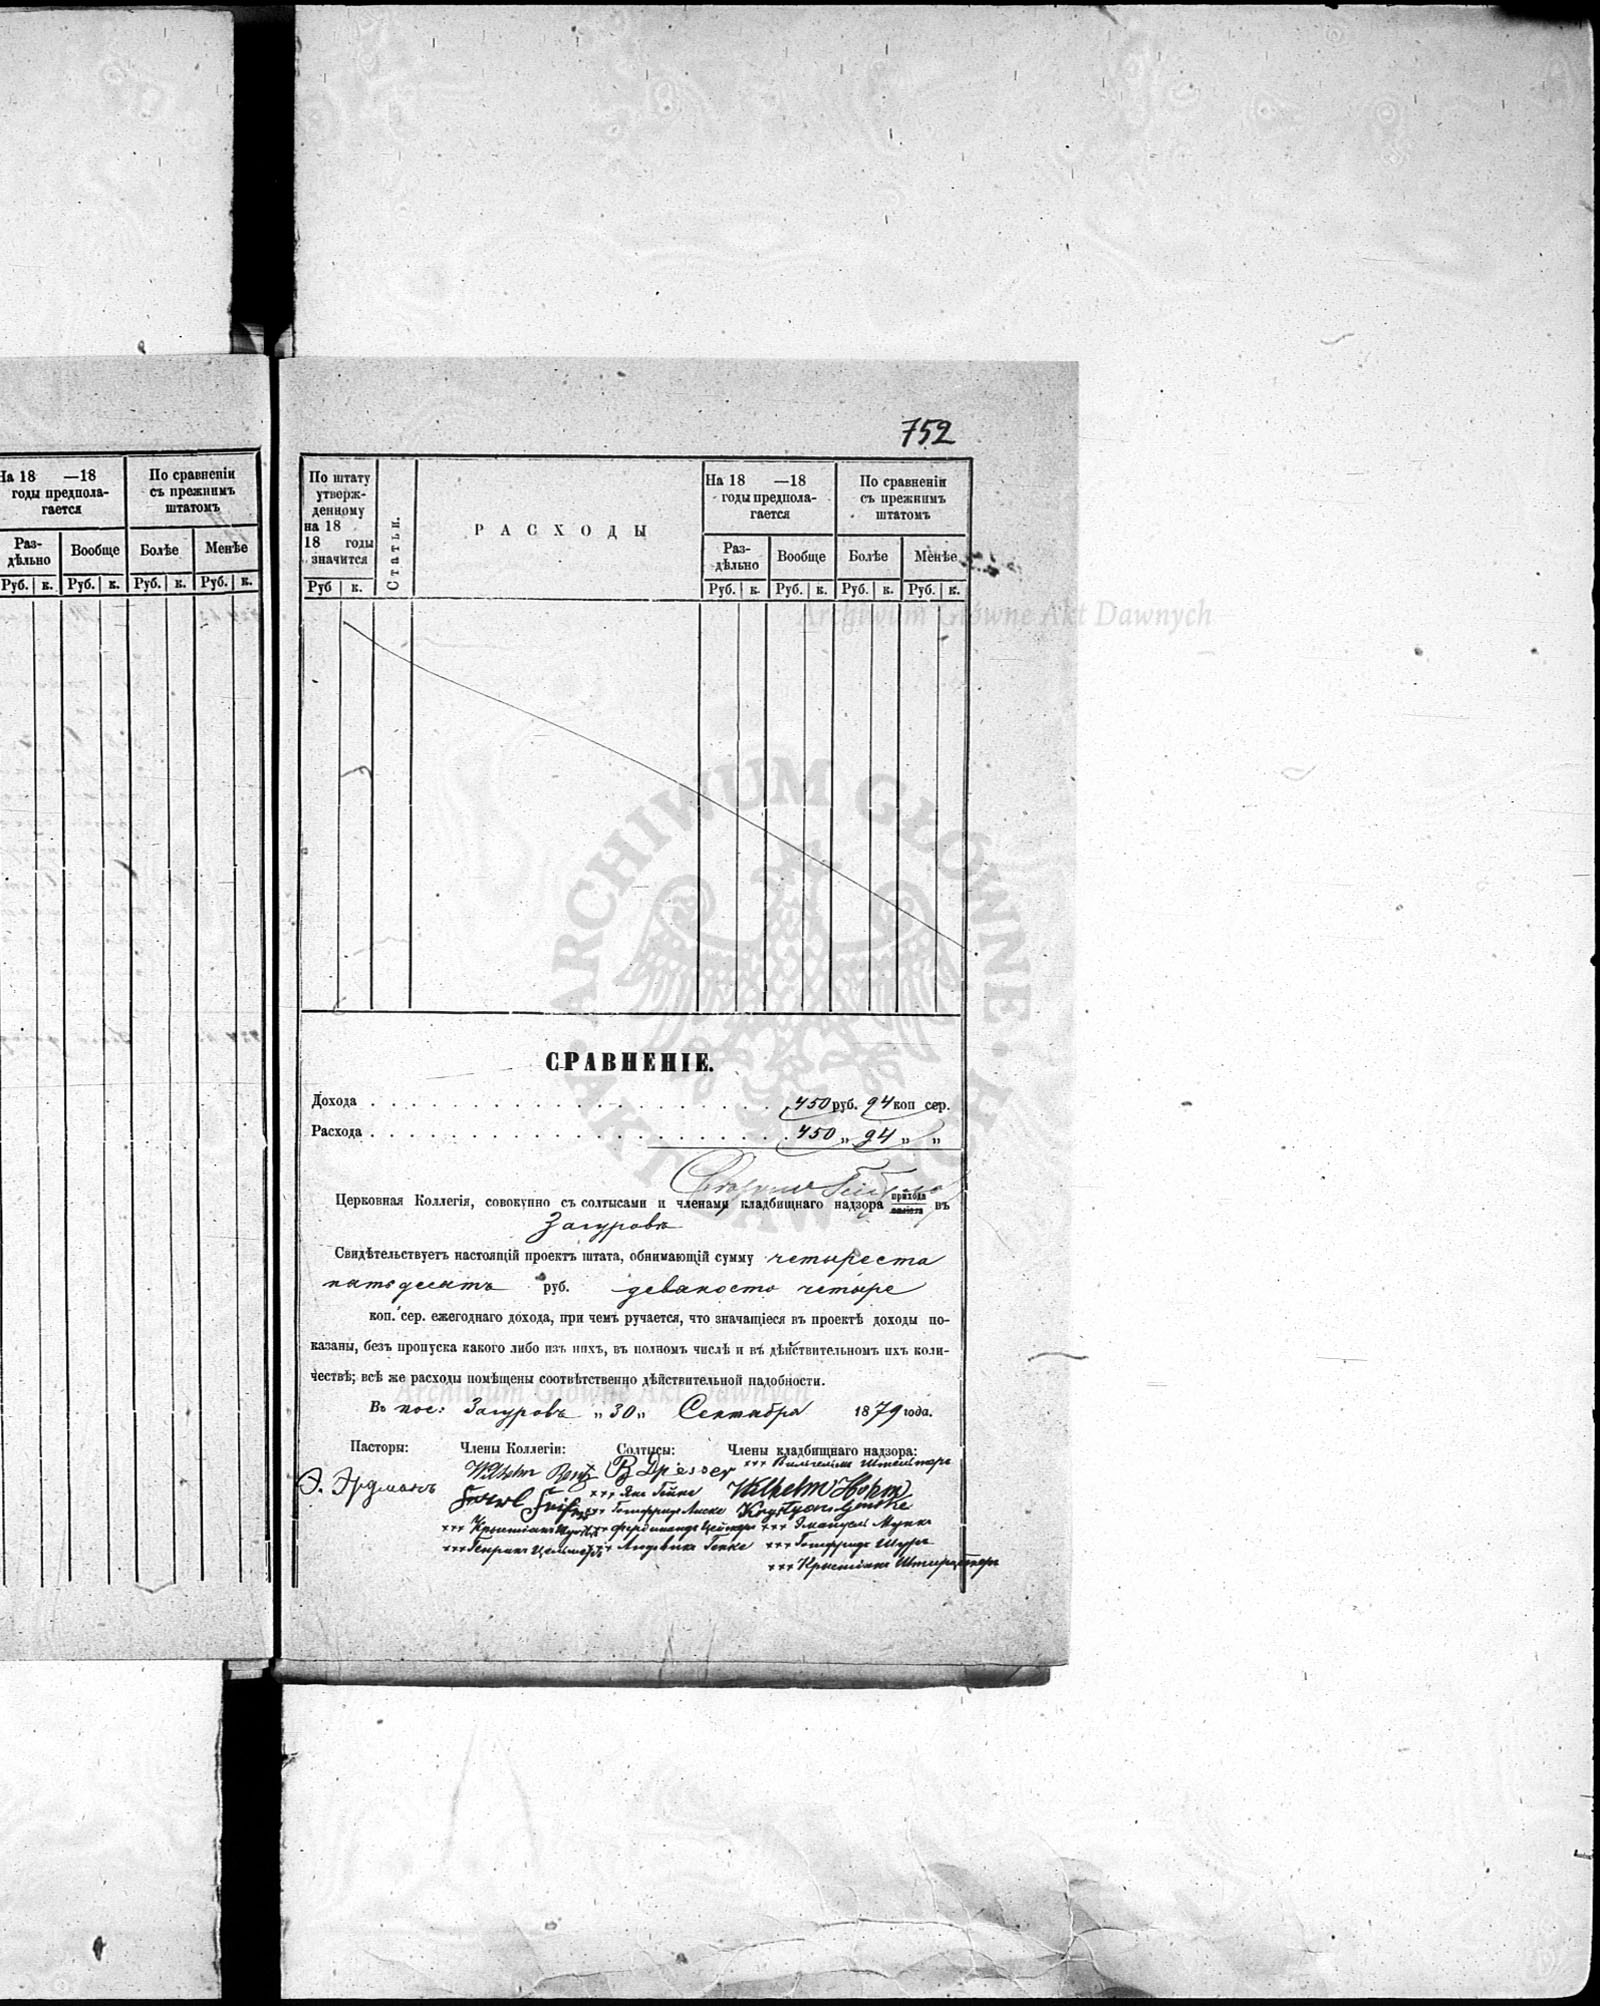 На 18 —18
годы предпола-
гается
По сравненіи
съ прежнимъ
штатомъ
Раз-
дѣльно
Вообще
Болѣе
Менѣе
Руб. к. Руб. к. Руб. к. Руб. к.
752
По штату
утверж-
денному
на 18
18 годы
значится
Статьи.
РАСХОДЫ
На 18 —18
годы предпола-
гается
По сравненіи
съ прежнимъ
штатомъ
Раз-
дѣльно
Вообще
Болѣе
Менѣе
Руб к. Руб. к. Руб. к. Руб. к. Руб. к.
Archiwum Główne Akt Dawnych
ARCHIWUM GŁÓWNE AKT DAWNYCH
СРАВНЕНІЕ.
Дохода 450 руб. 94 коп сер.
Расхода 450 „ 94 „ „
Церковная Коллегія, совокупно съ солтысами и членами кладбищнаго надзора прихода въ
Загуровѣ
Свидѣтельствуетъ настоящій проектъ штата, обнимающій сумму четыреста
пятьдесятъ руб. девяносто четыре
коп. сер. ежегоднаго дохода, при чемъ ручается, что значащіеся въ проектѣ доходы по-
казаны, безъ пропуска какого либо изъ нихъ, въ полномъ числѣ и въ дѣйствительномъ ихъ коли-
чествѣ; всѣ же расходы помѣщены соотвѣтственно дѣйствительной надобности.
Archiwum Główne Akt Dawnych
Въ пос: Загуровъ „ 30 „ Сентября 1879 года.
Пасторы: Члены Коллегіи: Солтысы: Члены кладбищнаго надзора:
Э. Эрдманъ
Wilhelm
+++ Янъ Гейне
Wilhelm Hohm
+++ Готфридъ Лиске
+++ Фердинандъ
+++ Людвикъ Генке
+++ Готфридъ Шуръ
+++ Крыстіанъ